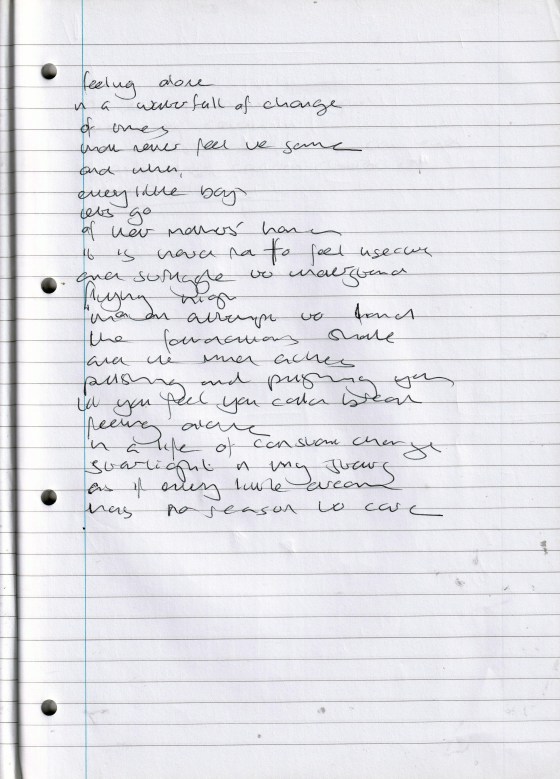 feeling alone
in a waterfall of change
of times
never feel the same
and when
every little boy
lets go
of their mothers hand
it is hard not to feel insecure
and struggle to understand
flying high
attempt to land
the foundations shake
and the mind aches
pushing and pushing you
til you feel you could break
feeling alone
in a life of constant change
starlight in my
as if every little dream
has no reason to care